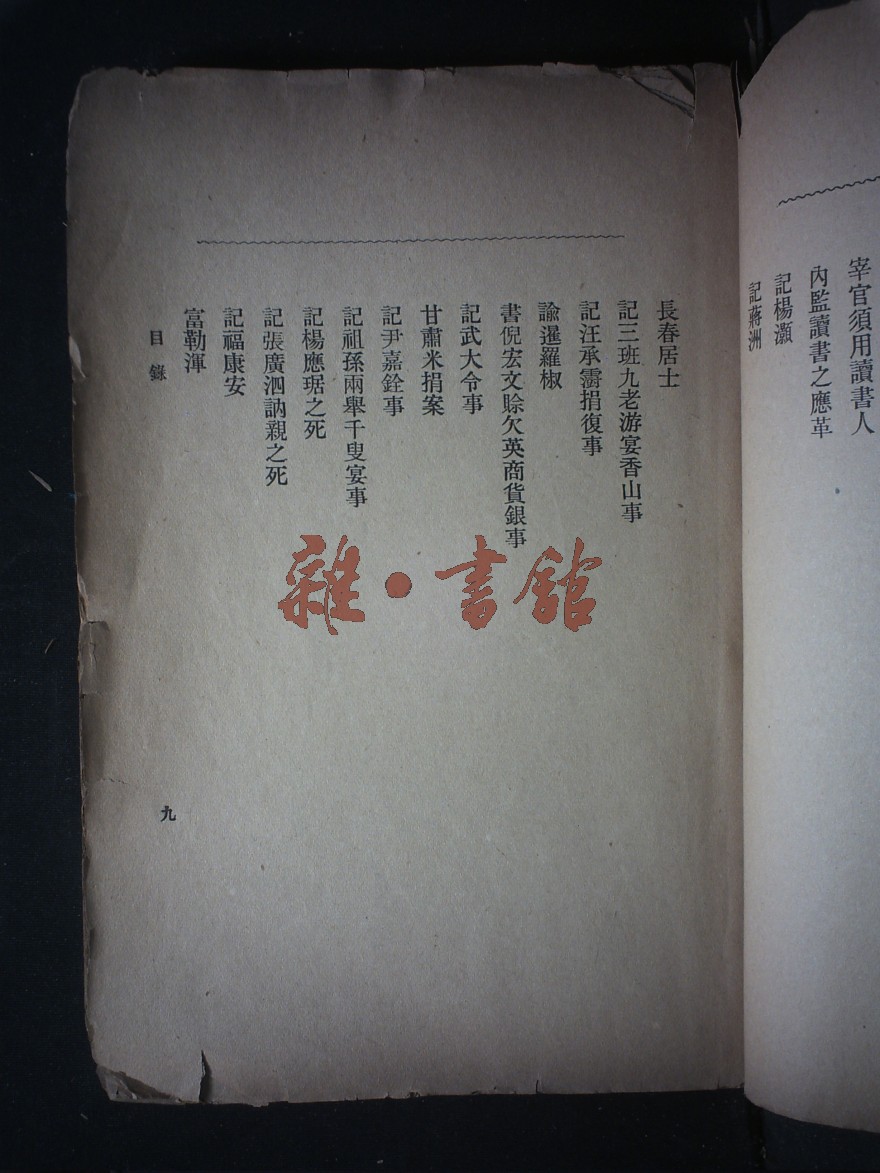 宰官須用讀書人
內監讀書之應革
記楊灝
記蔣洲
長春居士
記三班九老游宴香山事
記汪承霈捐復事
諭暹羅椒
書倪宏文賒欠英商貨銀事
記武大令事
甘肅米捐案
記尹嘉銓事
記祖孫兩舉千叟宴事
記楊應琚之死
記張廣泗訥親之死
記福康安
富勒渾
目錄
九
雜·書館